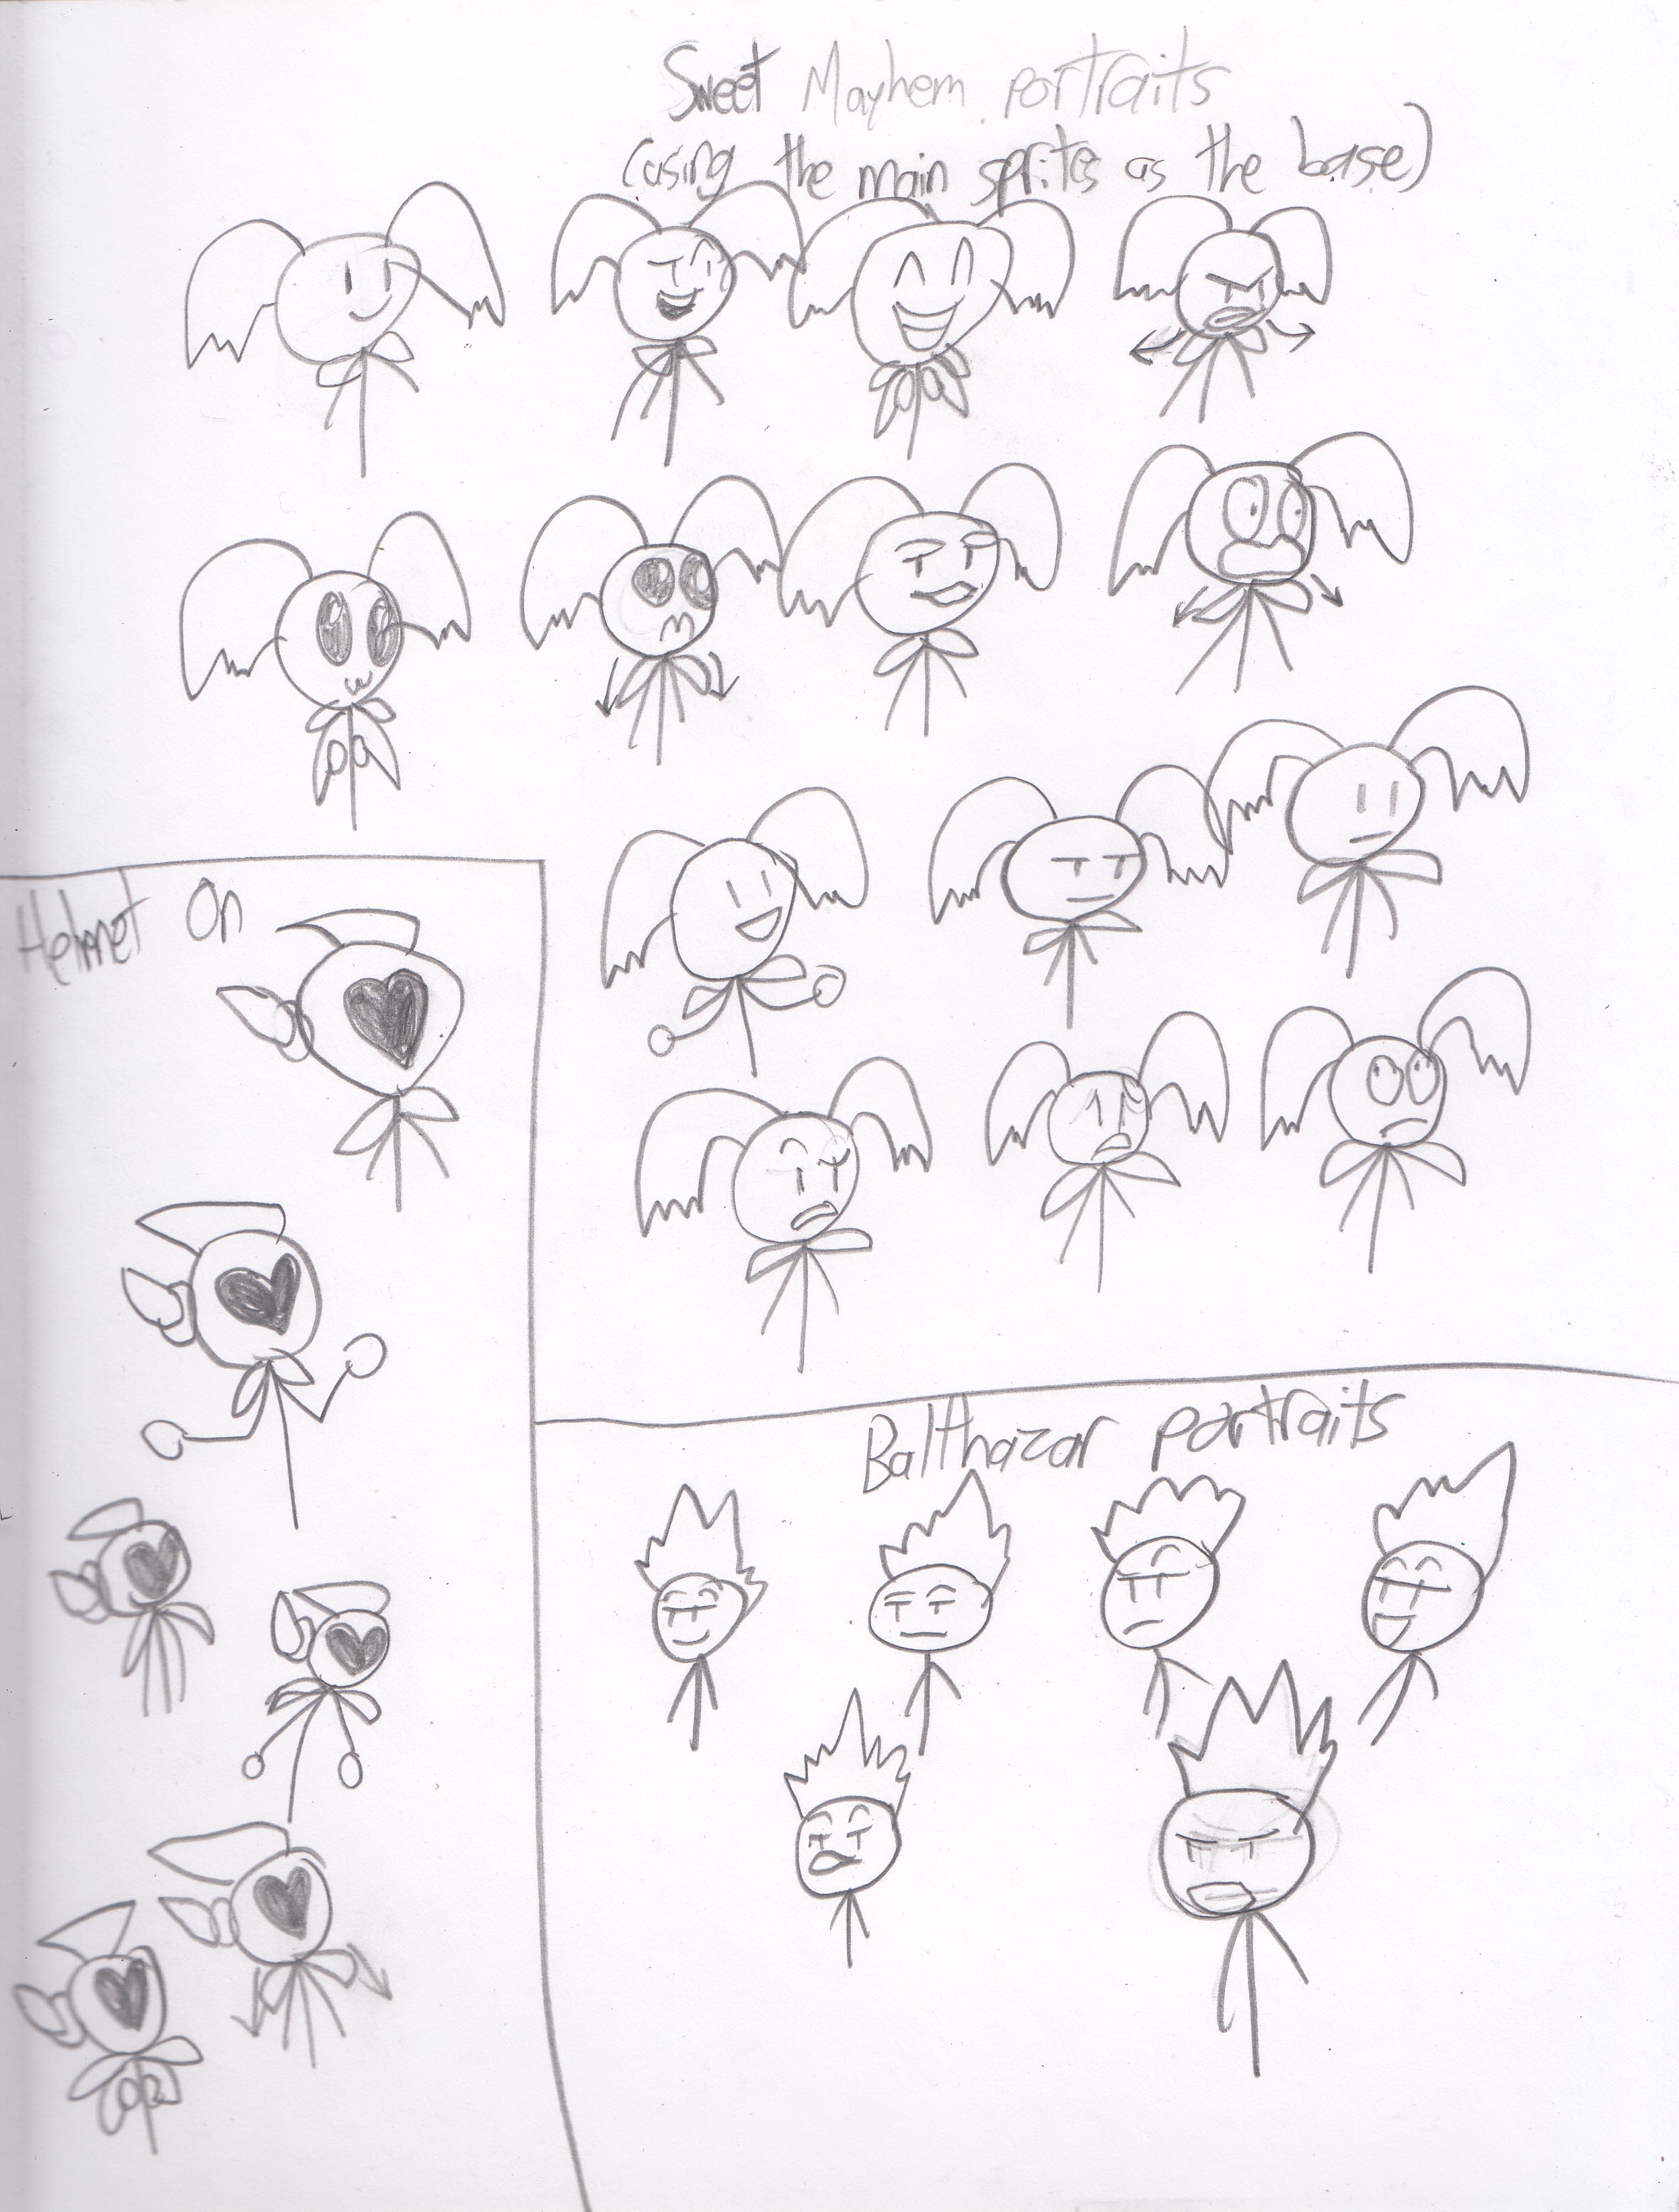 Sweet Mayhem portraits
(using the main sprites as the base)
Helmet On
Balthazar portraits